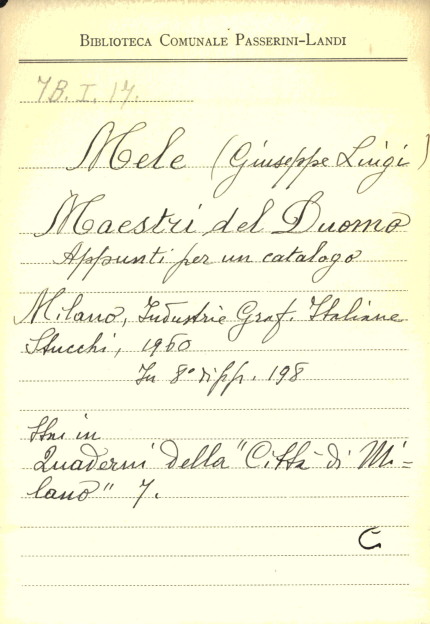 BIBLIOTECA COMUNALE PASSERINI-LANDI
7B. I. 17.
Mele (Giuseppe Luigi)
Maestri del Duomo
Appunti per un catalogo
Milano, Industrie Graf. Italiane
Stucchi, 1960
In 8° di pp. 198
Sta in
Quaderni della "Città di Mi=
lano" 7.
C